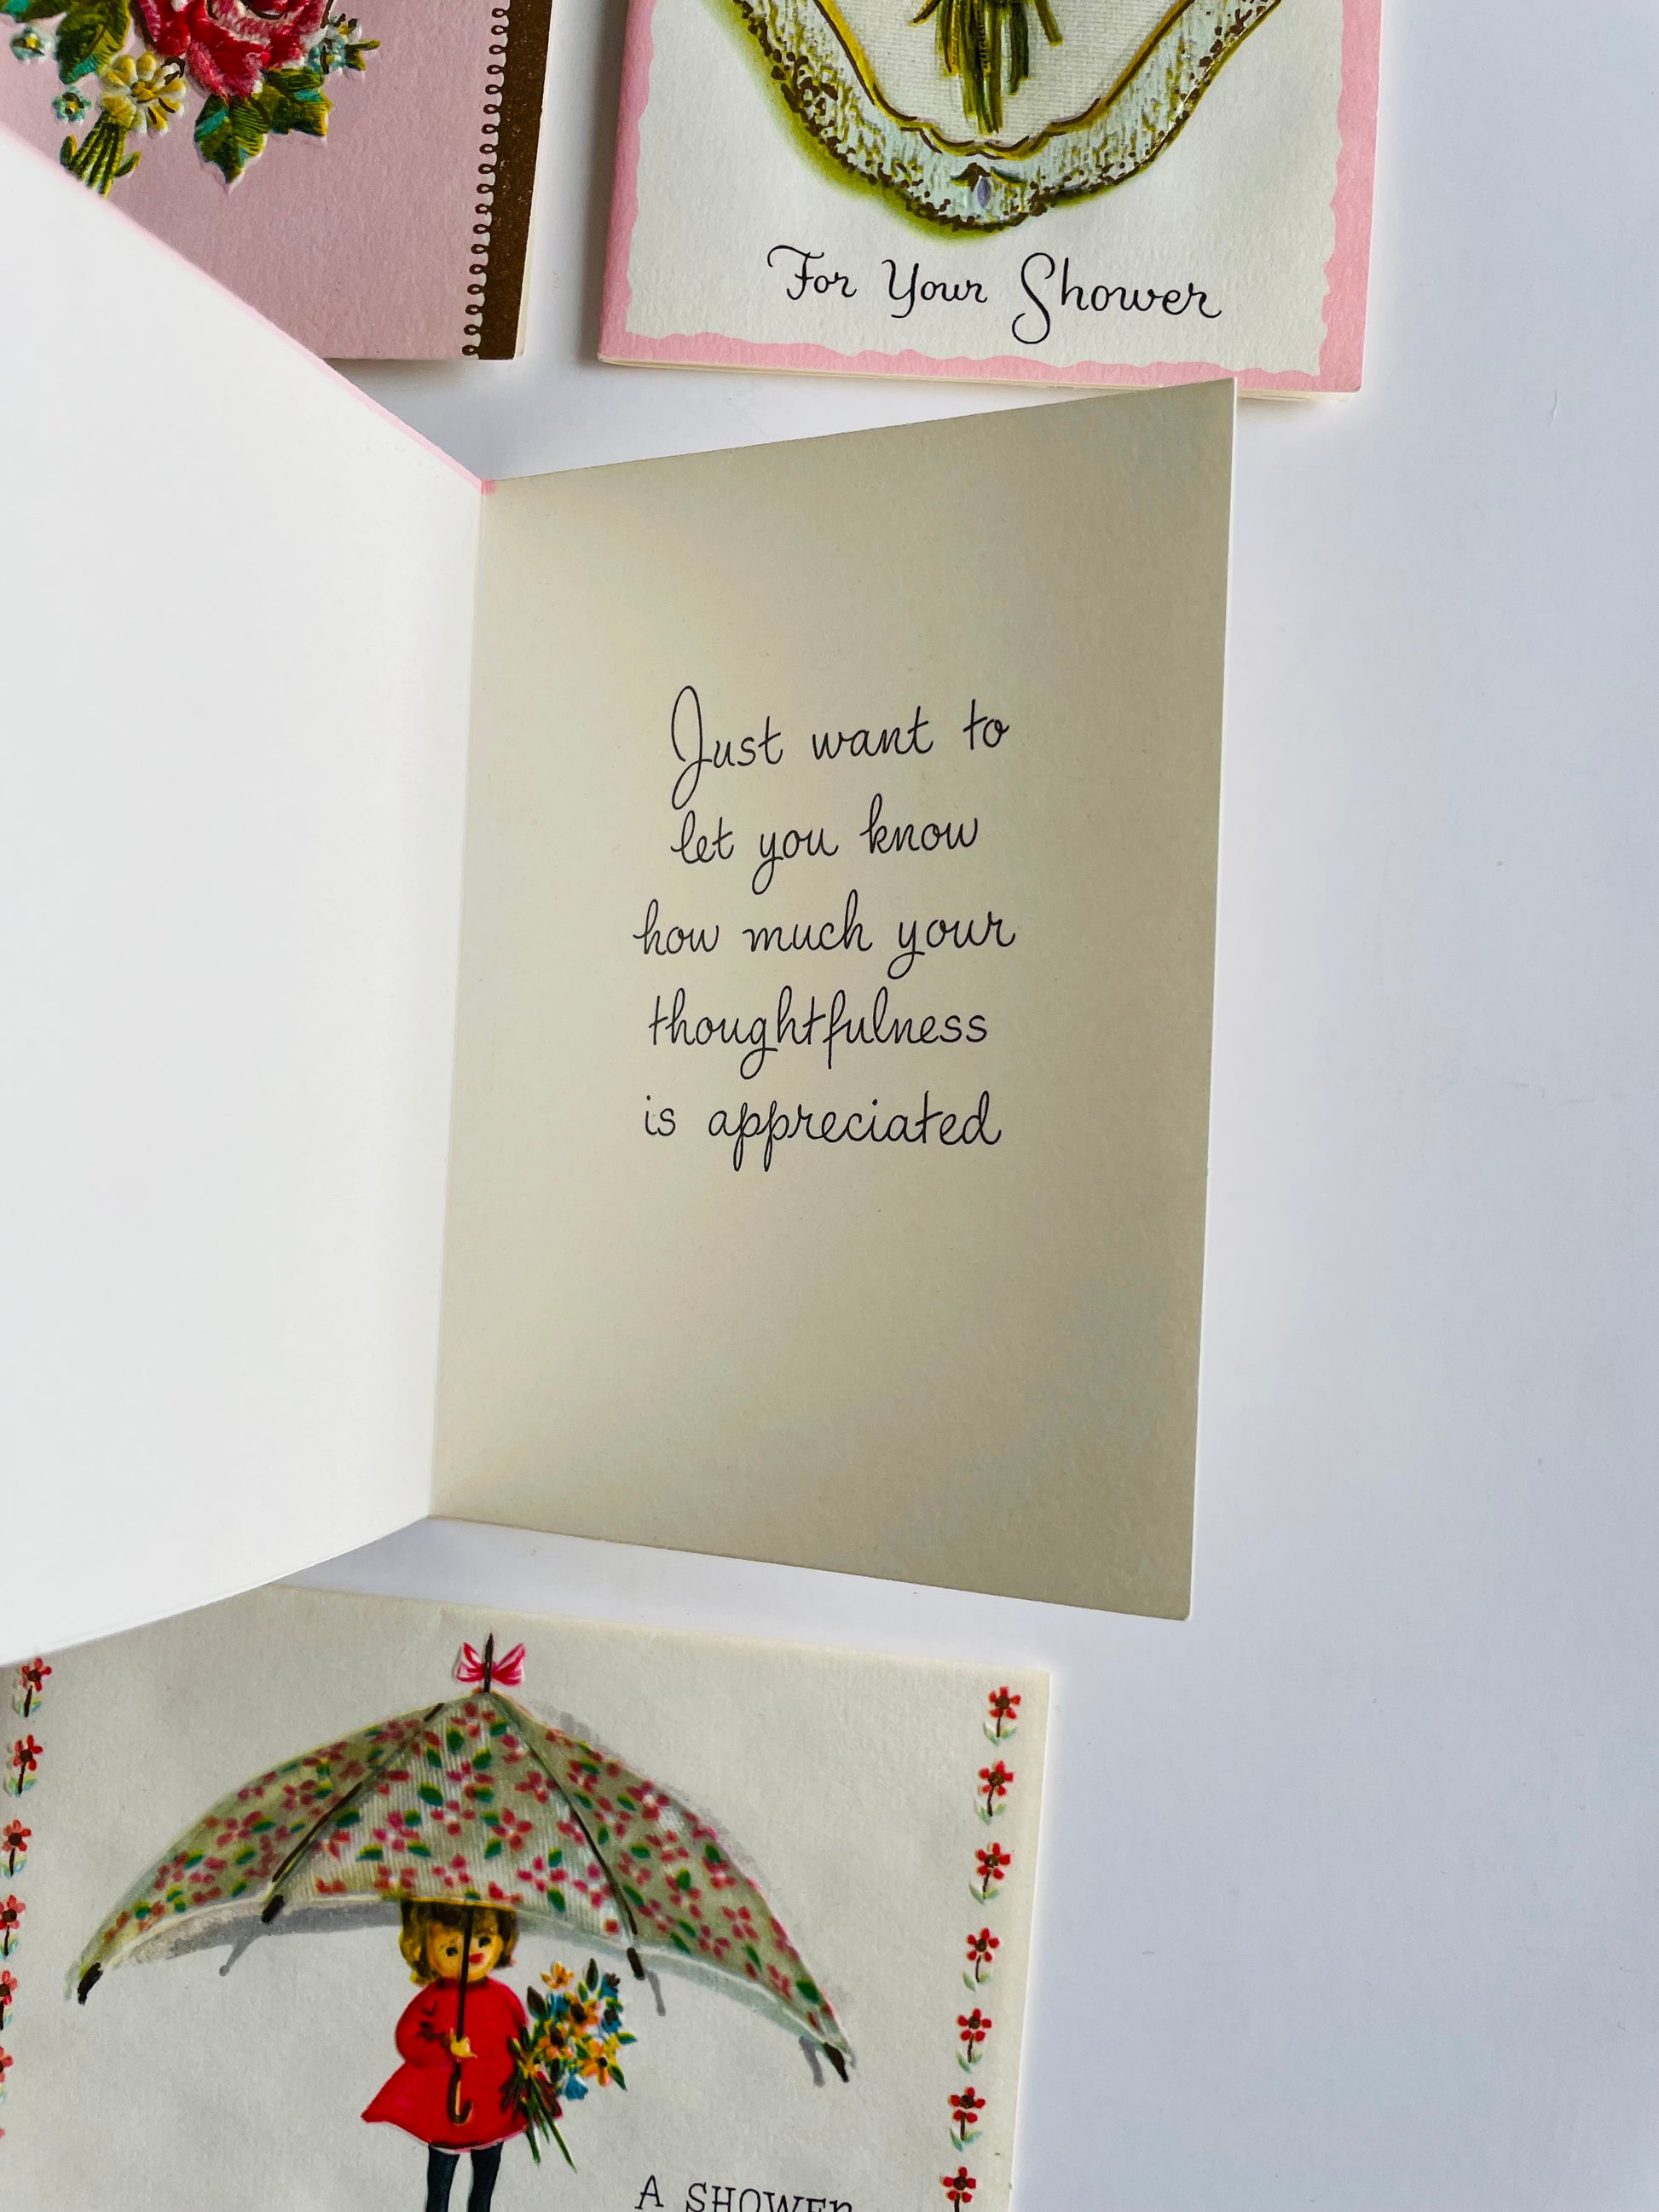 For Your Shower
Just want to
let you know
how much your
thoughtfulness
is appreciated
A SHOWER